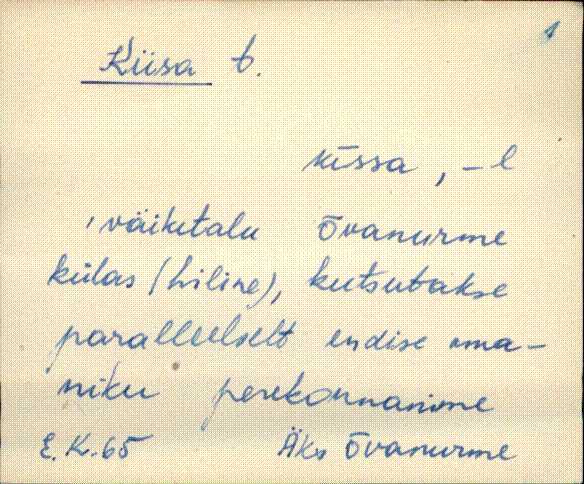 1
Kiisa t.
kīssa, -l
väiketalu Õvanurme
külas (hiline), kutsutakse
paralleelselt endise oma-
niku perekonnanime
E. K. 65 Äks Õvanurme